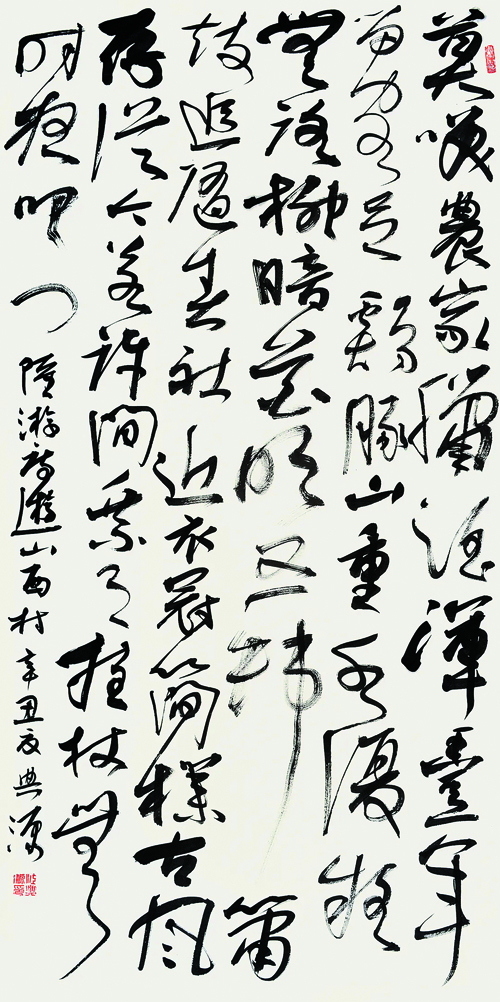 莫咲農家臘酒渾豐年
留客足鷄豚山重水復疑
無路柳暗花明又一村簫
鼓追隨春社近衣冠簡樸古風
存從今若許閒乘月拄杖無
時夜叩門
陸游詩遊山西村 辛丑夏 典